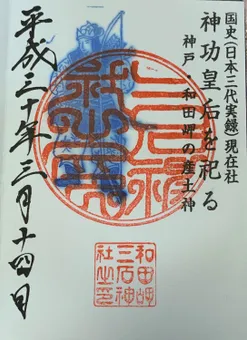 国史(日本三代実録)現在社
神功皇后を祀る
神戸・和田岬の産土神
三石神社之印
平成三十年三月十四日
和田岬
三石神
社之印